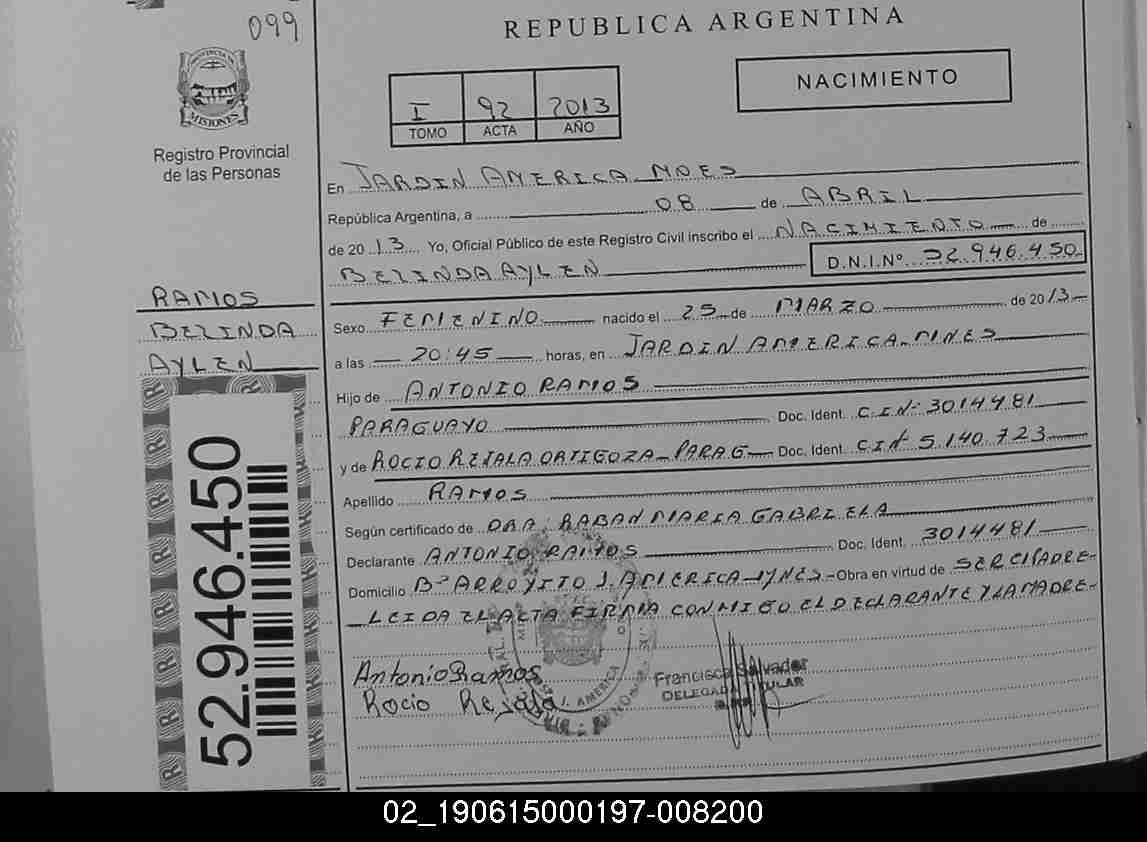 099
REPUBLICA ARGENTINA
PROVINCIA DE
MISIONES
Registro Provincial
de las Personas
I 92 2013
TOMO ACTA AÑO
NACIMIENTO
En JARDIN AMERICA MNES
República Argentina, a 08 de ABRIL
de 2013 Yo, Oficial Público de este Registro Civil inscribo el NACIMIENTO de
BELINDA AYLEN D.N.I.Nº 52.946.450
RAMOS
BELINDA
AYLEN
Sexo FEMENINO nacido el 25 de MARZO de 2013
a las 20:45 horas, en JARDIN AMERICA MNES
Hijo de ANTONIO RAMOS
PARAGUAYO Doc. Ident. C.I.Nº 3014481
y de ROCIO REJALA ORTIGOZA - PARAG Doc. Ident. CINº 5.140.723
Apellido RAMOS
Según certificado de DRA: RABAN MARIA GABRIELA
Declarante ANTONIO RAMOS Doc. Ident. 3014481
Domicilio Bº ARROYITO J. AMERICA MNES - Obra en virtud de SER EL PADRE-
LEIDA EL ACTA FIRMA CONMIGO EL DECLARANTE Y LA MADRE-
Antonio Ramos
Rocio Rejala
J. AMERICA
Francisco Salvador
DELEGADO TITULAR
52.946.450
02_190615000197-008200